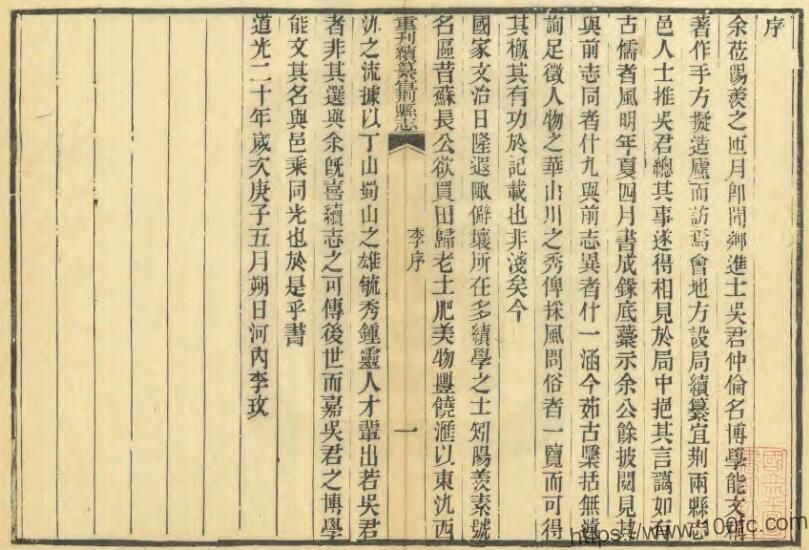 序
余莅陽羨之匝月卽聞鄉進士吳君仲倫名博學能文稱
著作手方擬造廬而訪焉會地方設局續纂宜荆兩縣志
邑人士推吳君總其事遂得相見於局中挹其言藹如有
古儒者風明年夏四月書成錄底藁示余公餘披閱見其
與前志同者什九與前志異者什一涵今茹古檃括無遺
詢足徵人物之華山川之秀俾採風問俗者一覽而可得
其槪其有功於記載也非淺矣今
國家文治日隆遐陬僻壤所在多績學之士矧陽羨素號
名區昔蘇長公欲買田歸老土肥美物豐饒滙以東氿西
重刊續纂宜荆縣志
李序
一
氿之流據以丁山蜀山之雄毓秀鍾靈人才輩出若吳君
者非其選與余旣喜續志之可傳後世而嘉吳君之博學
能文其名與邑乘同光也於是乎書
道光二十年歲次庚子五月朔日河內李玫
https://www.100fc.com